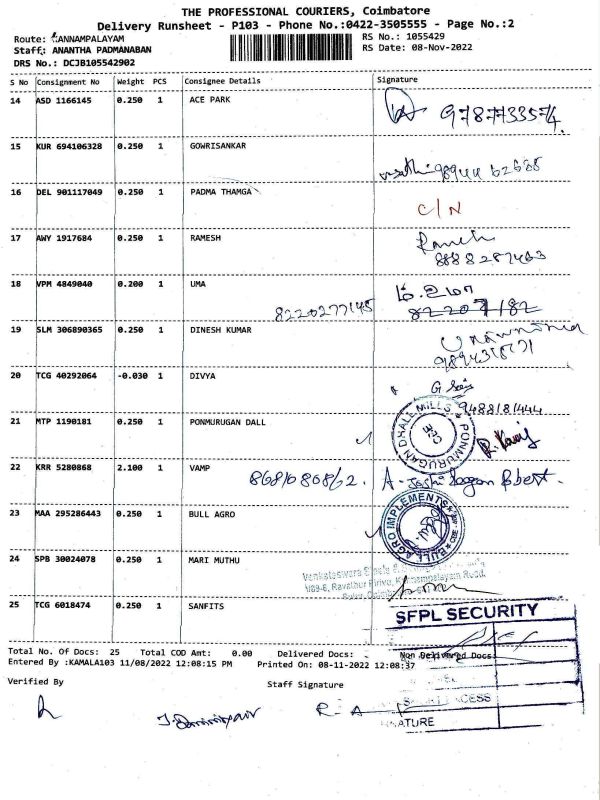 THE PROFESSIONAL COURIERS, Coimbatore
Delivery Runsheet - P103 - Phone No.:0422-3505555 - Page No.:2
Route: KANNAMPALAYAM
RS No.: 1055429
Staff: ANANTHA PADMANABAN
RS Date: 08-Nov-2022
DRS No.: DCJB105542902
S No Consignment No Weight PCS Consignee Details Signature
14 ASD 1166145 0.250 1 ACE PARK
9787733574
15 KUR 694106328 0.250 1 GOWRISANKAR
98944 62685
16 DEL 901117049 0.250 1 PADMA THAMGA
C/N
17 AWY 1917684 0.250 1 RAMESH
Ramesh
8888287463
18 VPM 4849040 0.200 1 UMA
உமா
8220277145
19 SLM 306890365 0.250 1 DINESH KUMAR
20 TCG 40292064 -0.030 1 DIVYA
9488181444
21 MTP 1190181 0.250 1 PONMURUGAN DALL
PONMURUGAN DHALL MILLS
CBE
22 KRR 5280868 2.100 1 VAMP
8681086862.
23 MAA 295286443 0.250 1 BULL AGRO
BULL AGRO IMPLEMENTS
24 SPB 30024078 0.250 1 MARI MUTHU
Venkateswara
25 TCG 6018474 0.250 1 SANFITS
SFPL SECURITY
Total No. Of Docs: 25 Total COD Amt: 0.00 Delivered Docs: Non Delivered Docs:
Entered By :KAMALA103 11/08/2022 12:08:15 PM Printed On: 08-11-2022 12:08:37
Verified By
Staff Signature
R A P